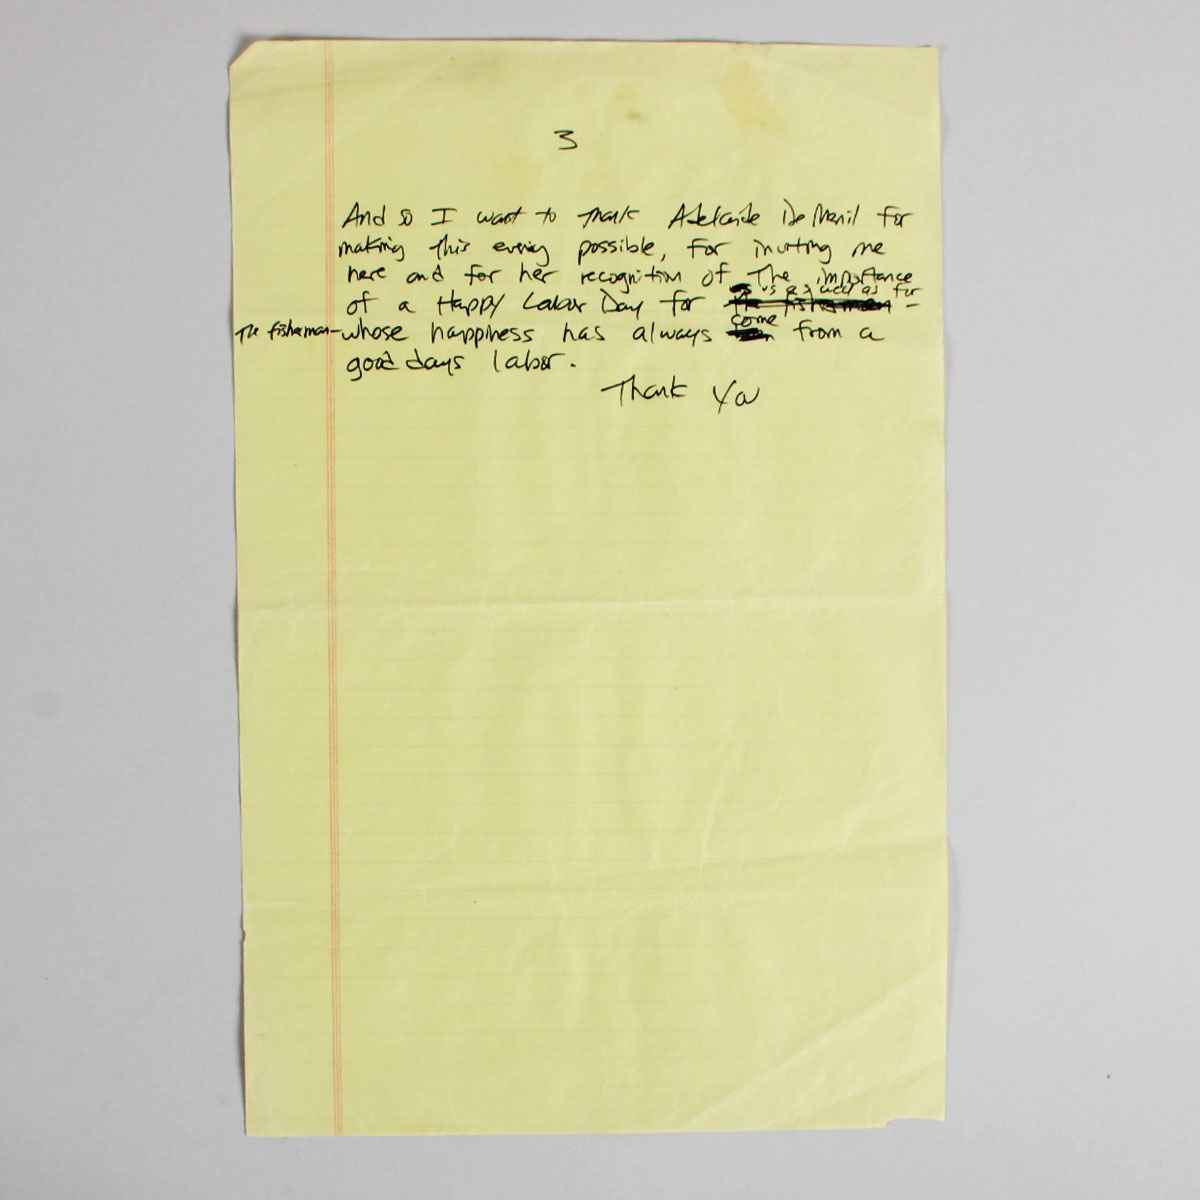 3
And so I want to thank Adelaide De Menil for
making this evening possible, for inviting me
here and for her recognition of The importance
us as well as for
of a Happy Labor Day for the fisherman -
come
The fisherman - whose happiness has always from a
good days labor.
Thank You